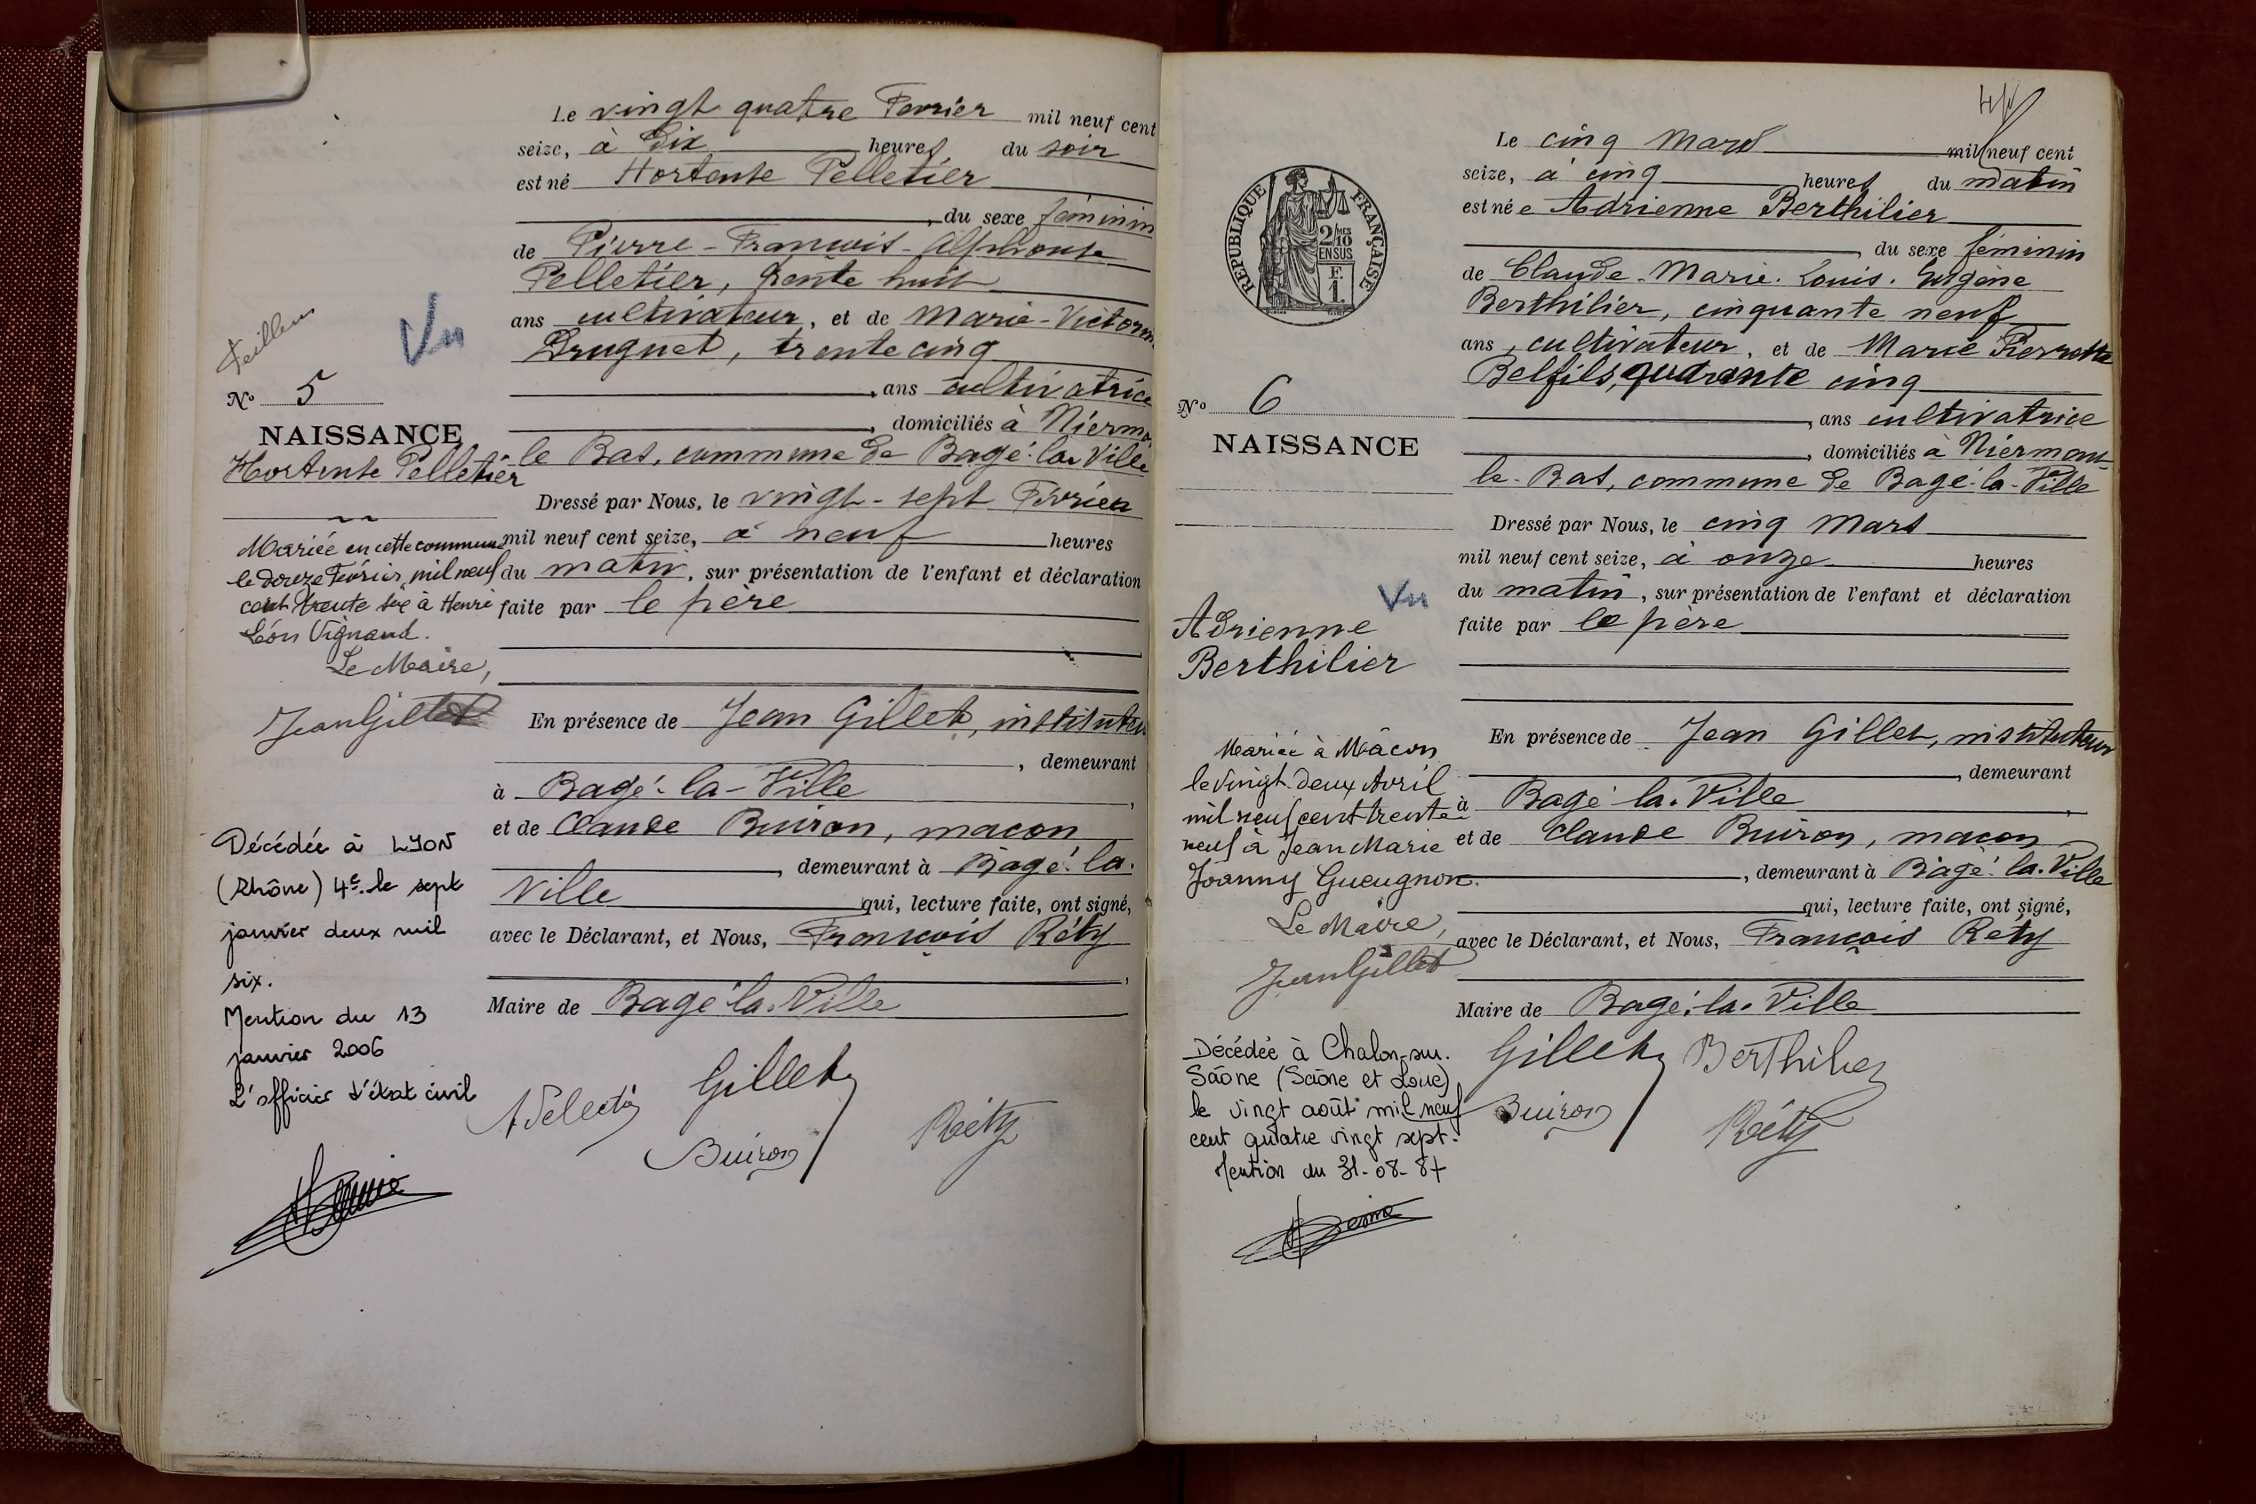 Le vingt quatre Fevrier mil neuf cent
seize, à Dix heures du soir
est né Hortense Pelletier
, du sexe féminin
de Pierre-François-Alphonse
Pelletier, trente huit
ans cultivateur, et de Marie-Victorine
Druguet, trente cinq
, ans cultivatrice
, domiciliés à Niermo
le Bas, commune de Bagé-la-Ville
Dressé par Nous, le vingt-sept Février
mil neuf cent seize, à neuf heures
du matin, sur présentation de l'enfant et déclaration
faite par le père
En présence de Jean Gillet, instituteur
, demeurant
à Bagé-la-Ville,
et de Claude Buiron, maçon
, demeurant à Bagé-la-
Ville qui, lecture faite, ont signé,
avec le Déclarant, et Nous, François Réty
,
Maire de Bagé-la-Ville
Gillet
Buiron Réty
Vu
No 5
NAISSANCE
Hortense Pelletier
Mariée en cette commune
le douze Février mil neuf
cent trente six à Henri
Léon Vignand.
Le Maire,
Jean Gillet
Décédée à LYON
(Rhône) 4e. le sept
janvier deux mil
six.
Mention du 13
janvier 2006
L'officier d'état civil
REPUBLIQUE FRANÇAISE
2/10 MES
EN SUS
F.
1.
Le cinq Mars mil neuf cent
seize, à cinq heures du matin
est née Adrienne Berthilier
, du sexe féminin
de Claude-Marie-Louis-Eugène
Berthilier, cinquante neuf
ans, cultivateur, et de Marie Pierrette
Belfils, quarante cinq
, ans cultivatrice
, domiciliés à Niermont-
le-Bas, commune de Bagé-la-Ville
Dressé par Nous, le cinq Mars
mil neuf cent seize, à onze heures
du matin, sur présentation de l'enfant et déclaration
faite par le père
En présence de Jean Gillet, instituteur
, demeurant
à Bagé-la-Ville,
et de Claude Buiron, maçon
, demeurant à Bagé-la-Ville
qui, lecture faite, ont signé,
avec le Déclarant, et Nous, François Réty
Maire de Bagé-la-Ville
Gillet Berthilier
Buiron Réty
No 6
NAISSANCE
Vu
Adrienne
Berthilier
Mariée à Mâcon
le vingt-deux Avril
mil neuf cent trente
neuf à Jean Marie
Joanny Gueugnon.
Le Maire,
Jean Gillet
Décédée à Chalon-sur-
Saône (Saône et Loire)
le vingt août mil neuf
cent quatre vingt sept.
Mention du 31-08-87